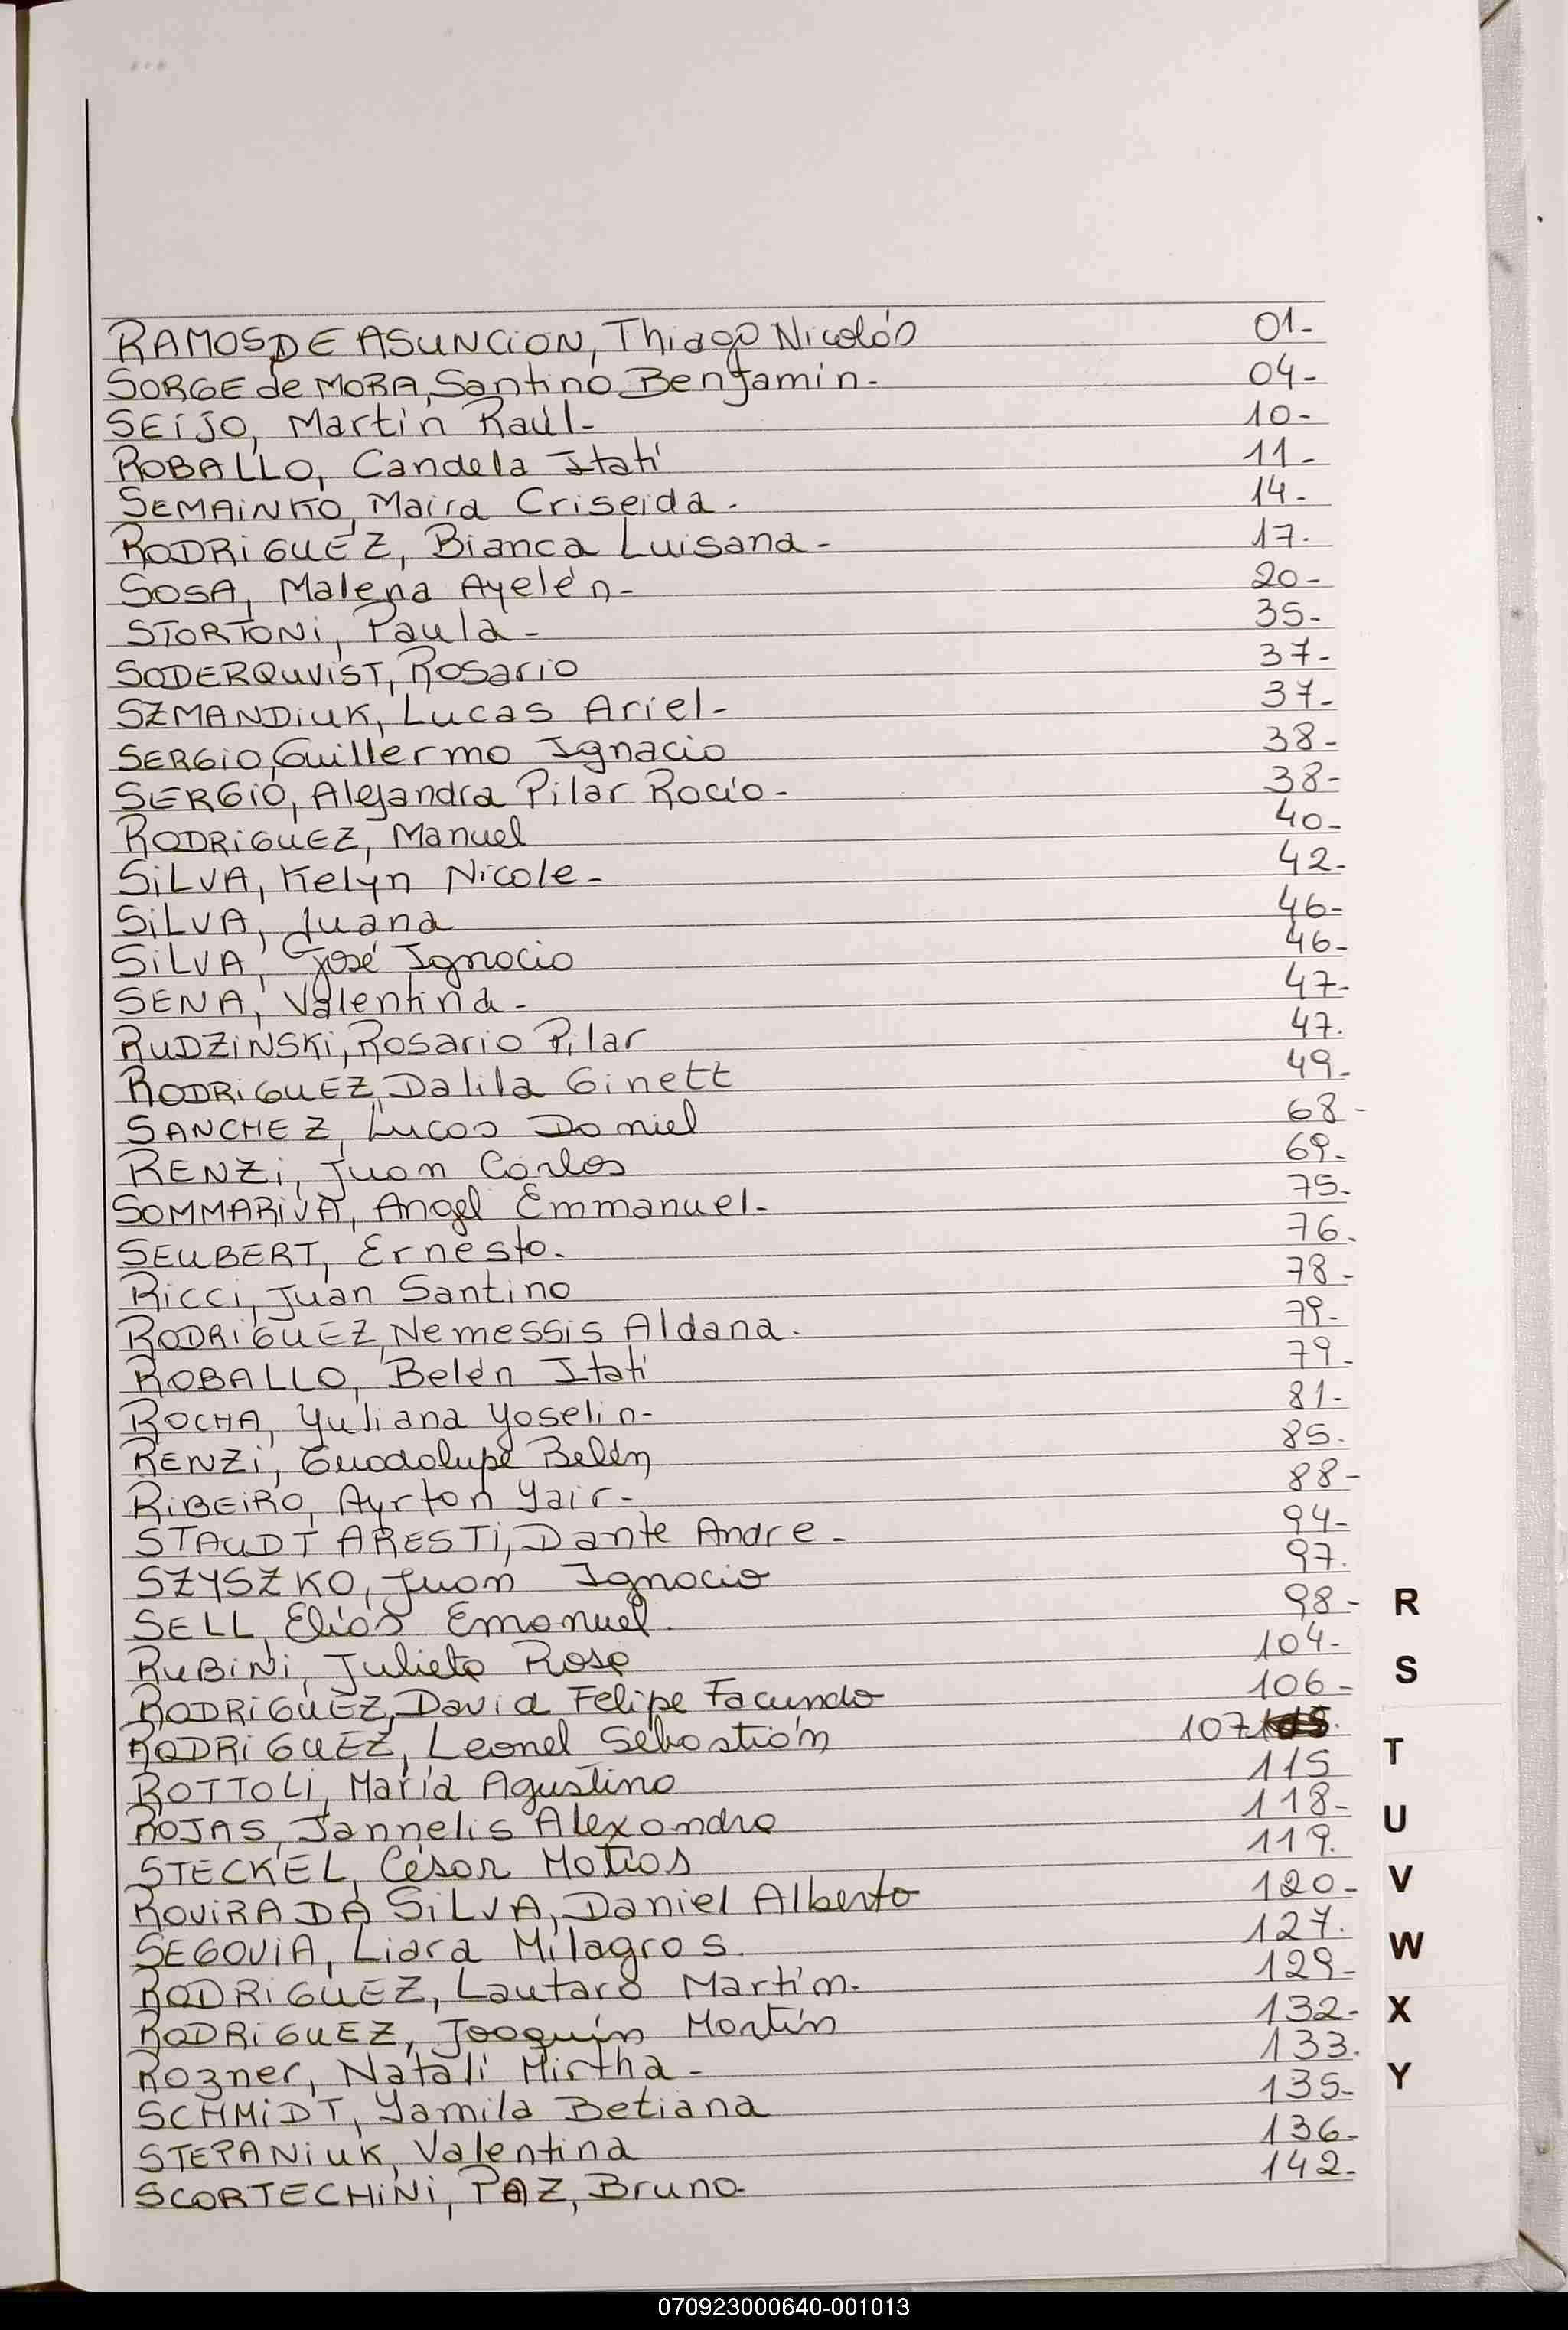 RAMOS DE ASUNCION, Thiago Nicolás 01-
SORGE de MORA, Santino Benjamin- 04-
SEIJO, Martín Raúl- 10-
ROBALLO, Candela Itatí 11-
SEMAINKO, Maira Criseida- 14-
RODRIGUEZ, Bianca Luisana- 17.
SOSA, Malena Ayelén- 20-
STORTONI, Paula- 35-
SODERQUVIST, Rosario 37-
SZMANDIUK, Lucas Ariel- 37-
SERGIO, Guillermo Ignacio 38-
SERGIO, Alejandra Pilar Rocío- 38-
RODRIGUEZ, Manuel 40-
SILVA, Kelyn Nicole- 42-
SILVA, Juana 46-
SILVA, José Ignacio 46-
SENA, Valentina- 47-
RUDZINSKI, Rosario Pilar 47.
RODRIGUEZ, Dalila Ginett 49-
SANCHEZ, Lucas Daniel 68-
RENZI, Juan Carlos 69-
SOMMARIVA, Angel Emmanuel- 75-
SEUBERT, Ernesto. 76.
RICCI, Juan Santino 78-
RODRIGUEZ, Nemessis Aldana. 79-
ROBALLO, Belén Itatí 79-
ROCHA, Yuliana Yoselin- 81-
RENZI, Guadalupe Belén 85.
RIBEIRO, Ayrton Yair- 88-
STAUDT ARESTI, Dante Andre- 94-
SZYSZKO, Juan Ignacio 97.
SELL, Elías Emanuel. 98-
RUBINI, Julieta Rosa 104-
RODRIGUEZ, David Felipe Facundo 106-
RODRIGUEZ, Leonel Sebastián 107
ROTTOLI, María Agustina 115
ROJAS, Jannelis Alexandra 118-
STECKEL, César Matias 119.
ROVIRA DA SILVA, Daniel Alberto 120-
SEGOVIA, Liara Milagros. 127.
RODRIGUEZ, Lautaro Martín. 129-
RODRIGUEZ, Joaquín Martín 132-
Rozner, Natalí Mirtha- 133.
SCHMIDT, Yamila Betiana 135-
STEPANIUK, Valentina 136-
SCORTECHINI, PAZ, Bruno- 142-
R
S
T
U
V
W
X
Y
070923000640-001013